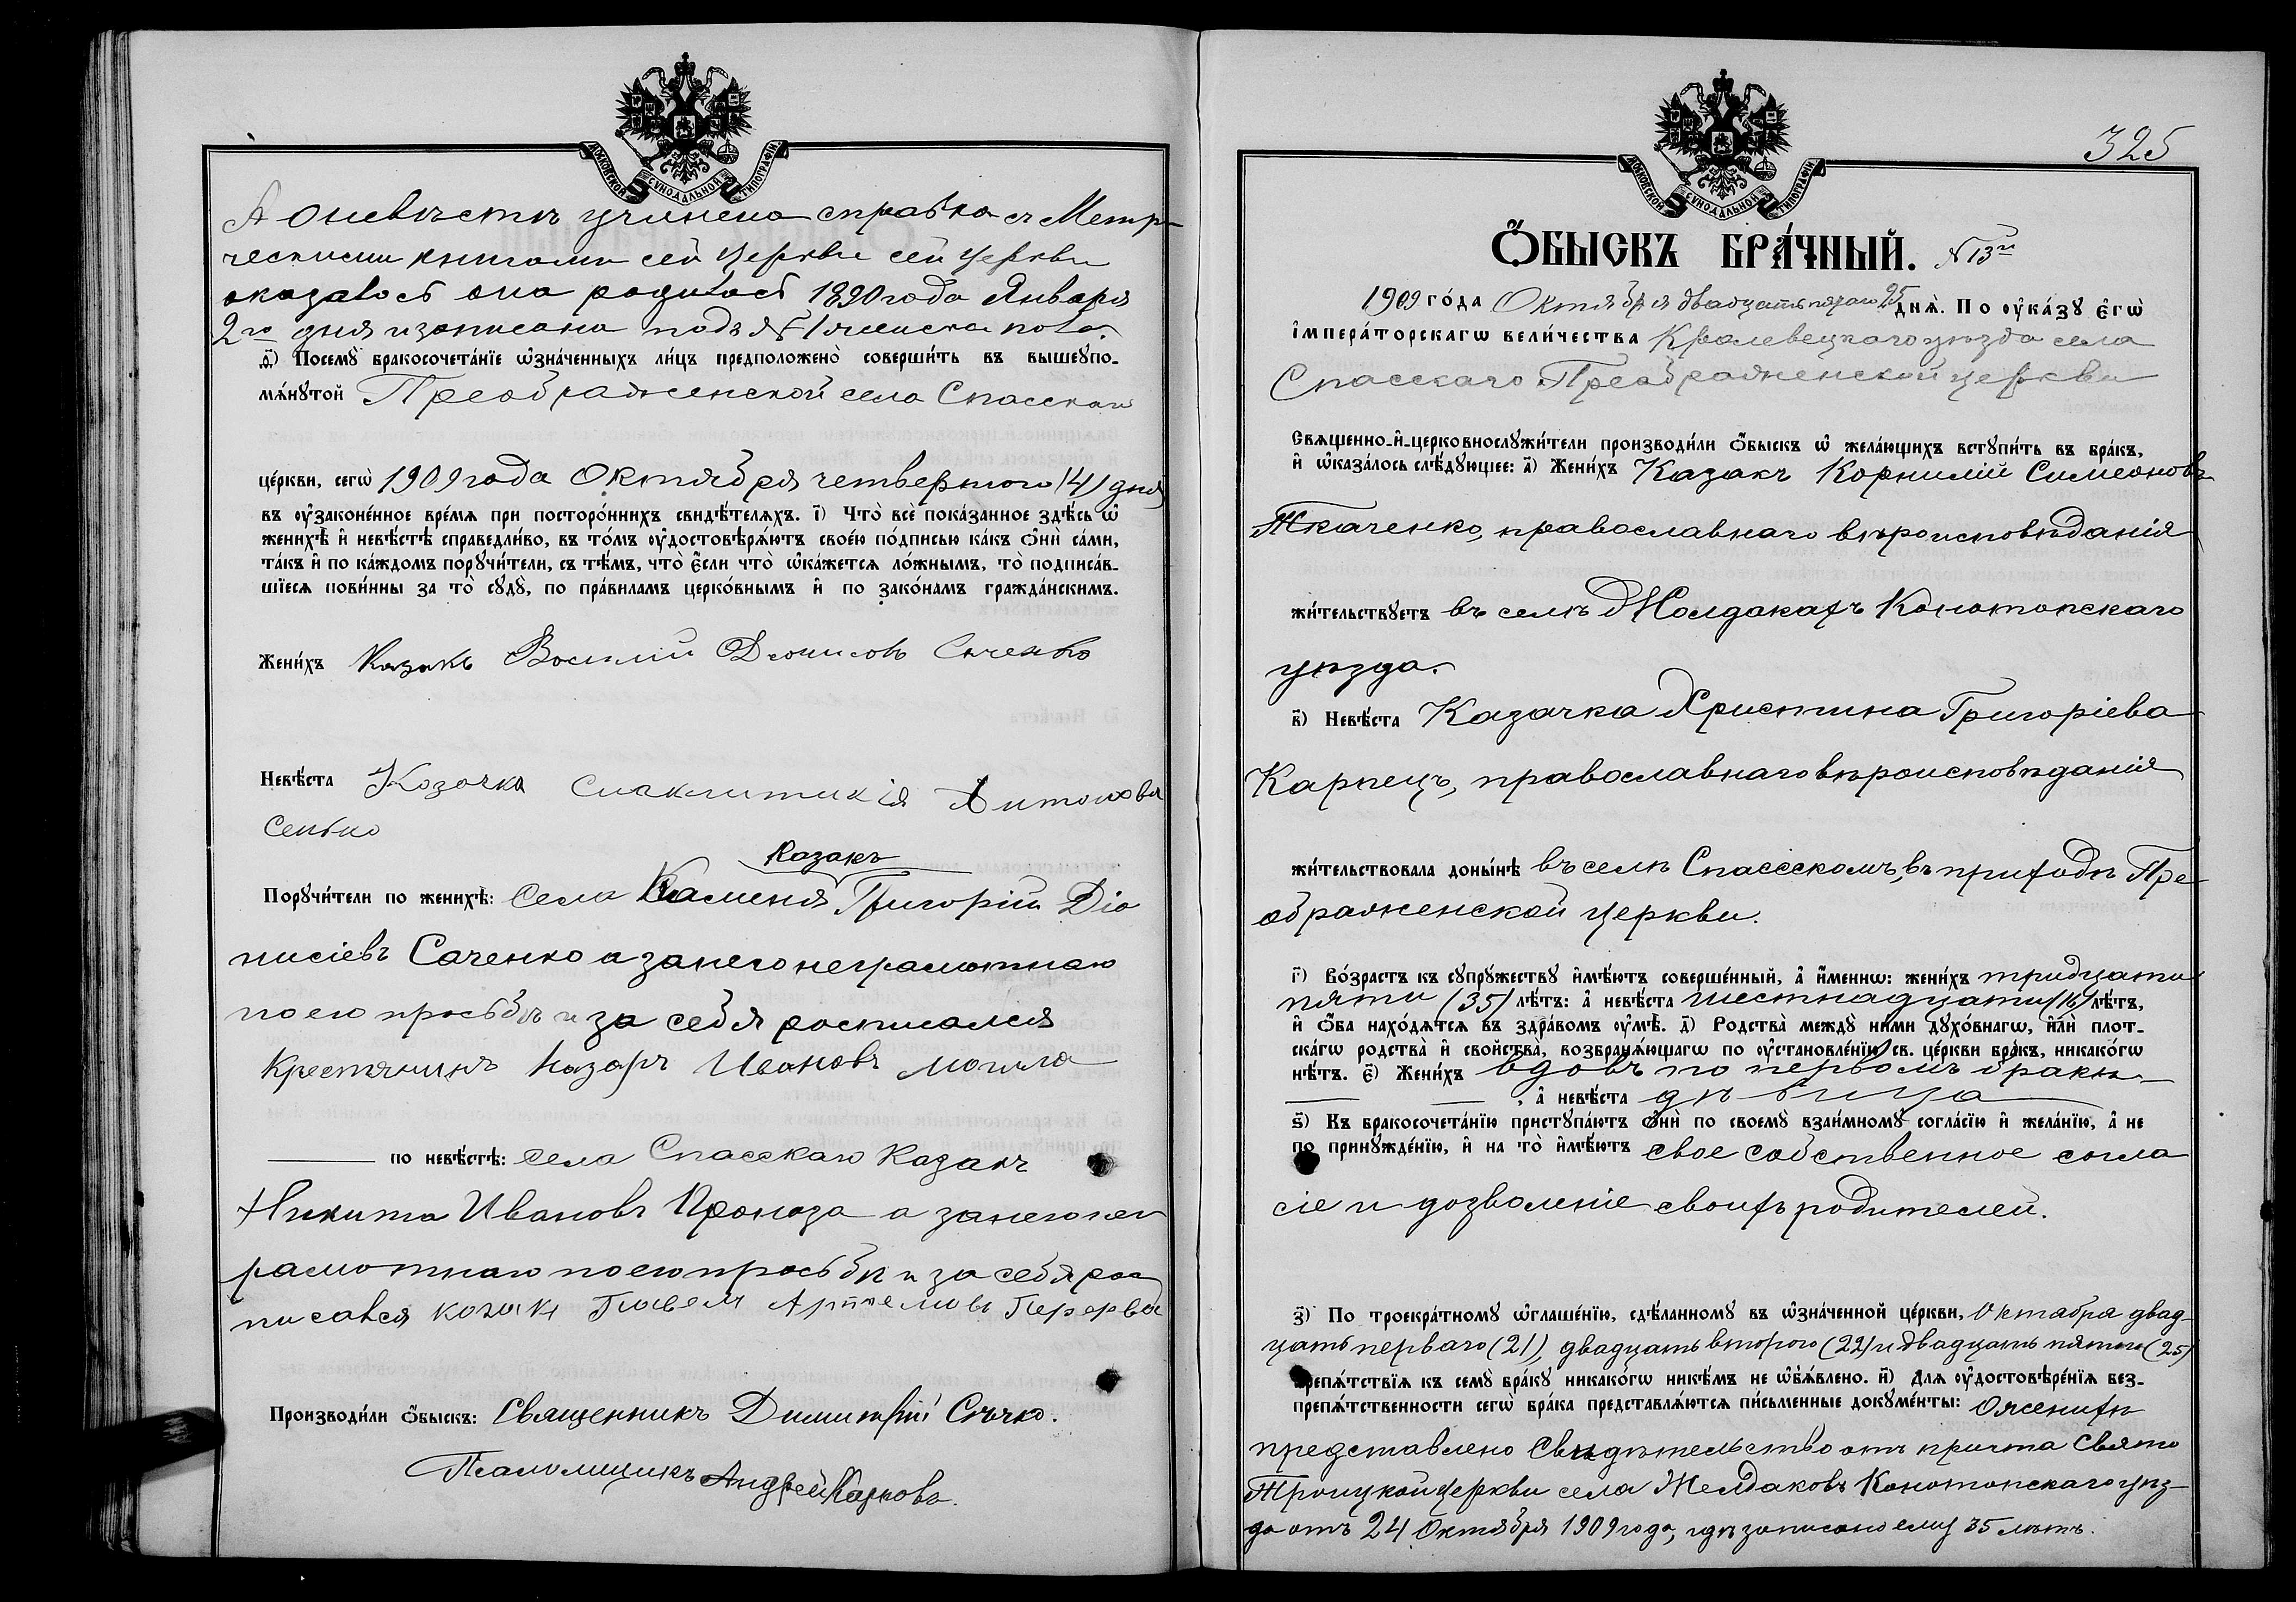 МОСКОВСКОЙ СУНОДАЛЬНОЙ ТИПОГРАФІИ
А оневѣстѣ учинена справка съ Метри
ческими книгами сей церкви сей церкви
оказалось она родилась 1890 года Января
2го дня и записана подъ № 1 женска пола.
д҃) Посемꙋ̀ бракосочета́нїе ѡ҆зна́ченныхъ ли́цъ предположено̀ соверши́ть въ вышеꙋпо-
мѧ́нꙋтой Преображенской села Спасскаго
це́ркви, сегѡ̀ 1909 года Октября четвертого (4) дня
въ ᲂу҆законе́нное вре́мѧ при посторо́ннихъ свидѣ́телѧхъ. і҃) Что̀ всѐ пока́занное здѣ́сь ѡ҆
женихѣ̀ и҆ невѣ́стѣ справедли́во, въ то́мъ ᲂу҆достовѣрѧ́ютъ свое́ю по́дписью ка́къ ѻ҆нѝ са́ми,
та́къ и҆ по ка́ждомъ порꙋчи́тели, съ тѣ́мъ, что̀ є҆́сли что̀ ѡ҆ка́жетсѧ ло́жнымъ, то̀ подписа́в-
шїесѧ пови́нны за то̀ сꙋдꙋ̀, по пра́виламъ церко́внымъ и҆ по зако́намъ гражда́нскимъ.
Жени́хъ Казакъ Василій Діонисовъ Саченко
Невѣ́ста Козачка Синклитикія Антонова
Сенько
Казакъ
Порꙋчи́тели по женихѣ̀: Села Каменя Григорій Діо
нисіевъ Саченко а занего неграмотнаго
по его прозьбѣ и за себя росписался
Крестянинъ Назаръ Ивановъ Могила
по невѣ́стѣ: села Спасскаго Казакъ
Никита Ивановъ Проноза а занего нег
рамотнаго по его прозьбѣ и за себя рос
писался козакъ Павелъ Артемовъ Перерва
Производи́ли ѻ҆́быскъ: Священникъ Димитрій Сѣчко.
Псаломщикъ Андрей Карповъ.
325
МОСКОВСКОЙ СУНОДАЛЬНОЙ ТИПОГРАФІИ
Ѻ҆́БЫСКЪ БРА́ЧНЫЙ. № 13й
1909 го́да Октября двадцать пятаго 25 днѧ̀. По ᲂу҆ка́зꙋ є҆гѡ̀
і҆мпера́торскагѡ вели́чества Кролевецкаго уѣзда села
Спасскаго Преображенской церкви
Свѧщенно-и҆-церковнослꙋжи́тели производи́ли ѻ҆́быскъ ѡ҆ жела́ющихъ вступи́ть въ бра́къ,
и҆ ѡ҆каза́лось слѣ́дꙋющее: а҃) Жени́хъ Казакъ Корнилій Симеоновъ
Ткаченко, православнаго вѣроисповѣданія
жи́тельствꙋетъ въ селѣ Жолдакахъ Конотопскаго
уѣзда.
в҃) Невѣ́ста Казачка Христина Григоріева
Карпецъ, православнаго вѣроисповѣданія
жи́тельствовала доны́нѣ въ селѣ Спасскомъ, въ приходѣ Пре
ображенской церкви.
г҃) Во́зрастъ къ сꙋпрꙋ́жествꙋ и҆мѣ́ютъ соверше́нный, а҆ и҆́меннѡ: жени́хъ тридцати
пяти (35) лѣ́тъ: а҆ невѣ́ста шестнадцати (16) лѣ́тъ,
и҆ ѻ҆́ба нахо́дѧтсѧ въ здра́вомъ ᲂу҆мѣ̀. д҃) Родства̀ междꙋ̀ ни́ми дꙋхо́внагѡ, и҆лѝ плот-
ска́гѡ родства̀ и҆ сво́йства, возбранѧ́ющагѡ по ᲂу҆становле́нїю св. це́ркви бра́къ, никако́гѡ
нѣ́тъ. є҃) Жени́хъ вдовъ по первомъ бракѣ
, а҆ невѣ́ста дѣвица
ѕ҃) Къ бракосочета́нїю пристꙋпа́ютъ ѻ҆нѝ по своемꙋ̀ взаи́мномꙋ согла́сїю и҆ жела́нїю, а҆ не
по принꙋжде́нїю, и҆ на то̀ и҆мѣ́ютъ свое собственное согла
сіе и дозволеніе своихъ родителей.
з҃) По троекра́тномꙋ ѡ҆глаше́нїю, сдѣ́ланномꙋ въ ѡ҆зна́ченной це́ркви, Октября двад-
цать перваго (21), двадцать второго (22) и двадцать пятого (25)
препѧ́тствїѧ къ семꙋ̀ бра́кꙋ никако́гѡ никѣ́мъ не ѡ҆бъѧ́влено. и҃) Длѧ ᲂу҆достовѣре́нїѧ без-
препѧ́тственности сегѡ̀ бра́ка представлѧ́ютсѧ пи́сьменные докꙋме́нты: О женихѣ
представлено Свидѣтельство отъ причта Свято
Троицкой церкви села Желдаковъ Конотопскаго уѣз-
да отъ 24 Октября 1909 года, гдѣ записано ему 35 лѣтъ.